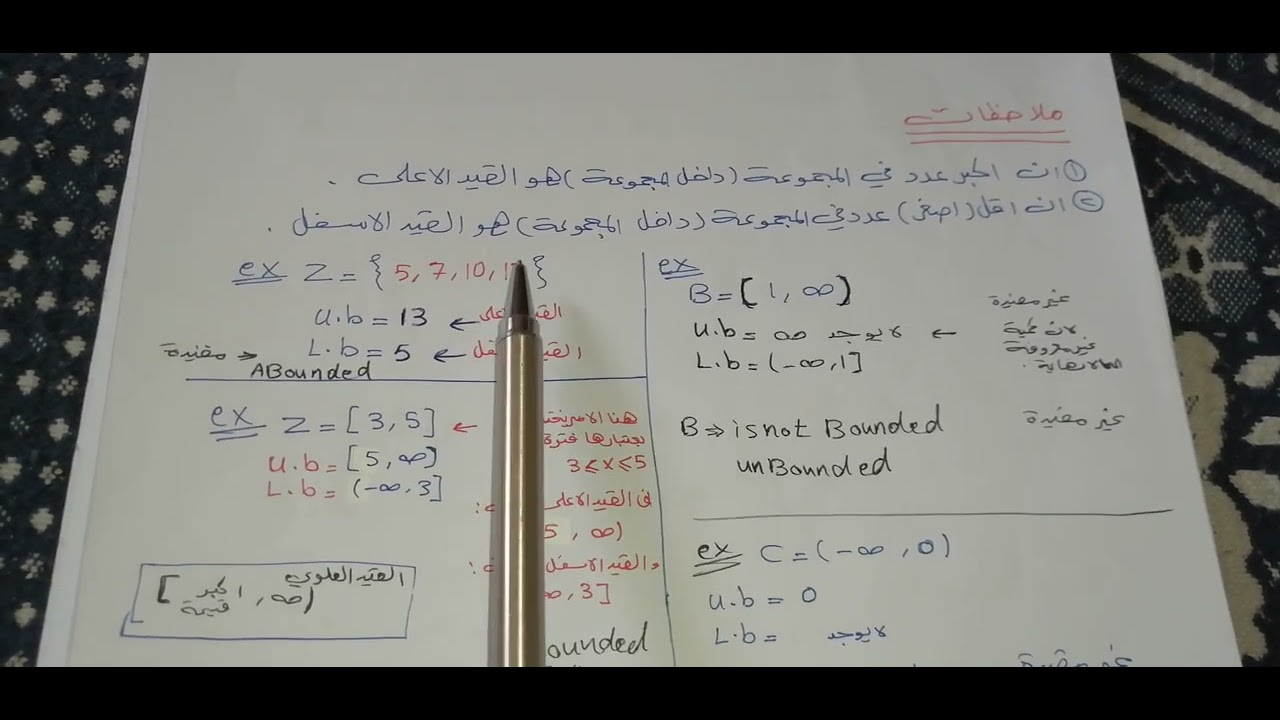 ملاحظات
① ان اكبر عدد في المجموعة (داخل مجموعة) هو القيد الاعلى .
② ان اقل (اصغر) عدد في المجموعة (داخل المجموعة) هو القيد الاسفل .
ex Z = { 5, 7, 10, 1 }
u.b = 13 ← الق على
L.b = 5 ← القي فل
مقيدة ⇐ ABounded
ex Z = [3, 5] ← هنا الامر يخت
بعتبارها فترة
3 ≤ x ≤ 5
u.b = [5, ∞)
L.b = (-∞, 3]
فى القيد الاعلى :
5, ∞)
و القيد الاسفل :
∞, 3]
ounded
القيد العلوي
[اكبر قيمة , ∞)
ex
B = [1, ∞)
غير مقيدة
u.b = ∞ لا يوجد ←
لان
L.b = (-∞, 1]
B ⇒ is not Bounded غير مقيدة
unBounded
ex C = (-∞, 0)
u.b = 0
L.b = لا يوجد
غير مقيدة